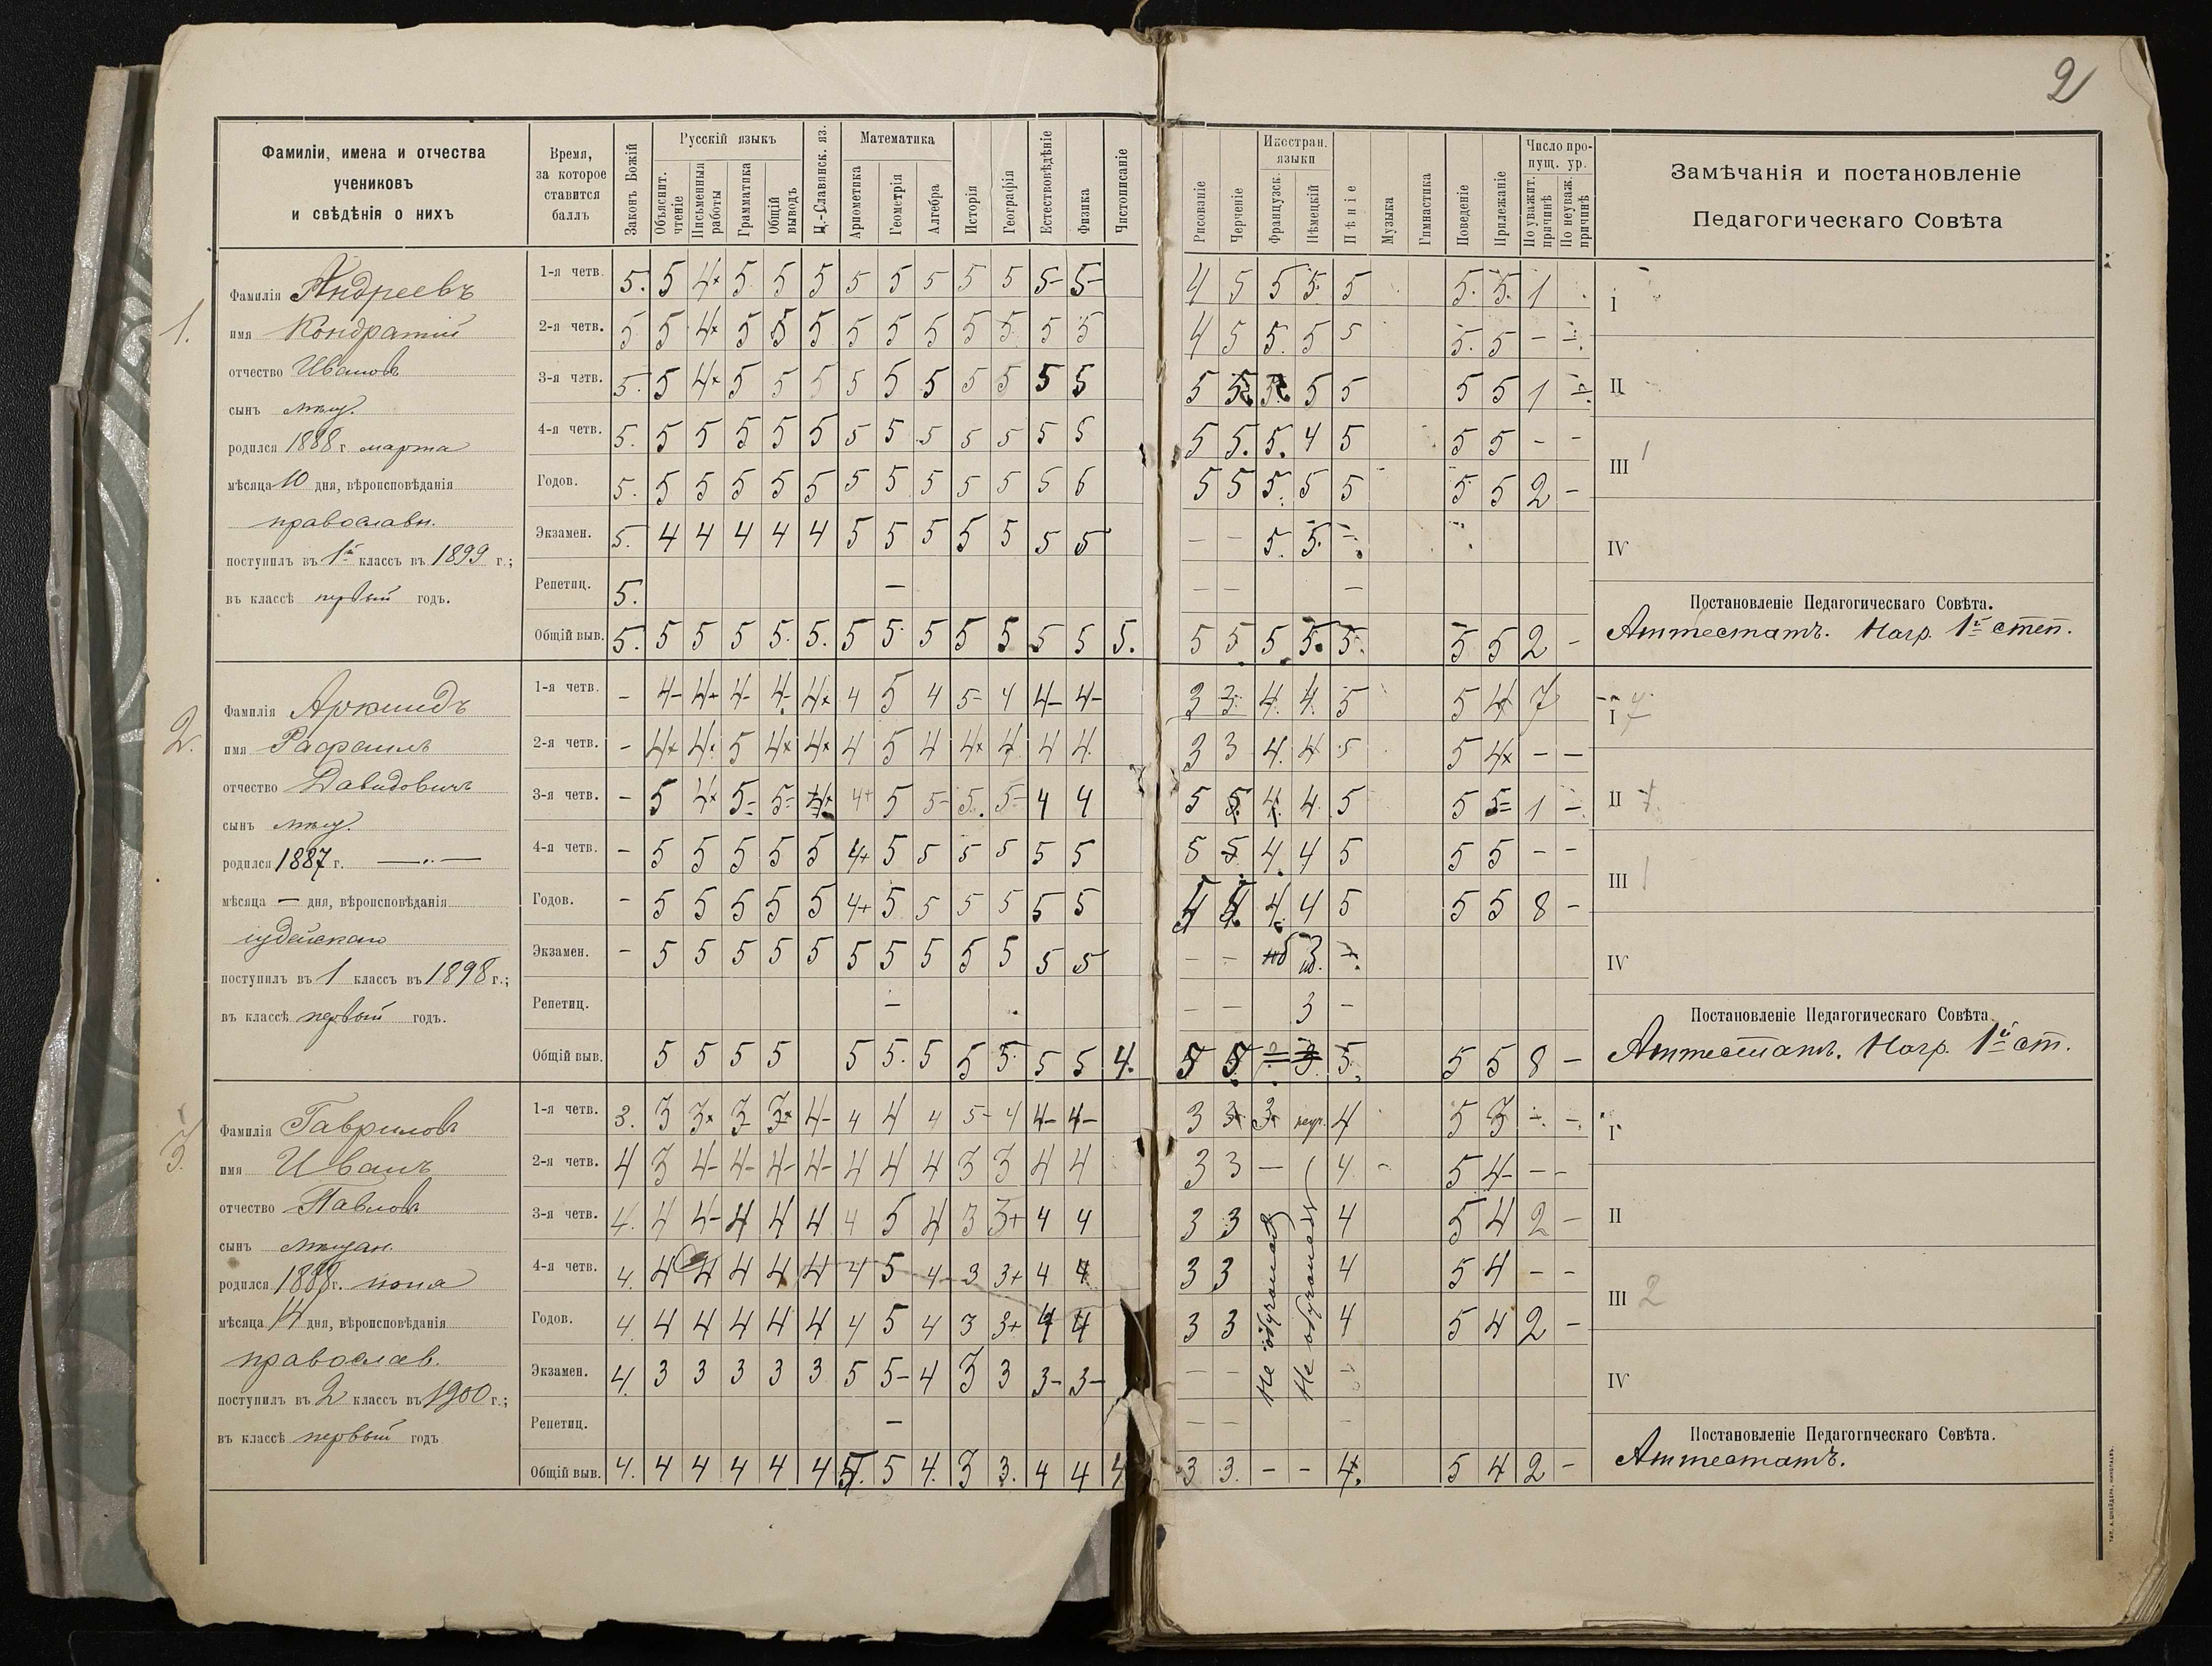 2
Фамиліи, имена и отчества
учениковъ
и свѣдѣнія о нихъ
Время,
за которое
ставится
баллъ
Законъ Божій
Русскій языкъ
Объяснит. чтеніе
Письменныя работы
Грамматика
Общій выводъ
Ц.-Славянск. яз.
Математика
Ариѳметика
Геометрія
Алгебра
Исторія
Географія
Естествовѣдѣніе
Физика
Чистописаніе
Рисованіе
Черченіе
Иностран. языки
Французск.
Нѣмецкій
Пѣніе
Музыка
Гимнастика
Поведеніе
Прилежаніе
Число пропущ. ур.
По уважит. причинѣ
По неуваж. причинѣ
Замѣчанія и постановленіе
Педагогическаго Совѣта
1.
Фамилія Андреевъ
имя Кондратій
отчество Ивановъ
сынъ мѣщ.
родился 1888 г. марта
мѣсяца 10 дня, вѣроисповѣданія
православн.
поступилъ въ 1й классъ въ 1899 г.;
въ классѣ первый годъ.
1-я четв. 5. 5 4+ 5 5 5 5 5 5 5 5 5- 5- 4 5 5 5. 5 5. 5. 1
2-я четв. 5 5 4+ 5 5 5 5 5 5 5 5 5 5 4 5 5. 5 5 5. 5 - -
3-я четв. 5. 5 4+ 5 5 5 5 5 5 5 5 5 5 5 5 5 5 5 5 5 1 -
4-я четв. 5. 5 5 5 5 5 5 5 5 5 5 5 5 5 5. 5. 4 5 5 5 - -
Годов. 5. 5 5 5 5 5 5 5 5 5 5 5 5 5 5 5. 5 5 5 5 2 -
Экзамен. 5. 4 4 4 4 4 5 5 5 5 5 5 5 - - 5. 5. -
Репетиц. 5. - - - -
Общій выв. 5. 5 5 5 5. 5. 5 5. 5 5 5 5 5 5. 5 5 5 5. 5. 5 5 2 -
I
II
III 1
IV
Постановленіе Педагогическаго Совѣта.
Аттестатъ. Нагр. 1й степ.
2.
Фамилія Аркиндъ
имя Рафаилъ
отчество Давидовичъ
сынъ мѣщ.
родился 1887 г. —„—
мѣсяца — дня, вѣроисповѣданія
іудейскаго
поступилъ въ 1 классъ въ 1898 г.;
въ классѣ первый годъ.
1-я четв. - 4- 4+ 4- 4- 4+ 4 5 4 5- 4 4- 4- 3 3 4. 4. 5 5 4 7
2-я четв. - 4+ 4 5 4+ 4+ 4 5 4 4+ 4 4 4 3 3 4. 4 5 5 4+ - -
3-я четв. - 5 4+ 5- 5- 4+ 4+ 5 5- 5. 5- 4 4 5 5 4. 4 5 5 5- 1 -
4-я четв. - 5 5 5 5 5 4+ 5 5 5 5 5 5 5 5 4. 4 5 5 5 - -
Годов. - 5 5 5 5 5 4+ 5 5 5 5 5 5 4. 4 5 5 5 8 -
Экзамен. - 5 5 5 5 5 5 5 5 5 5 5 5 - - нб 3 нб. -
Репетиц. - - - 3 -
Общій выв. 5 5 5 5 5 5. 5 5 5. 5 5 4. 5 5 5. 5 5 8 -
I 7
II 1
III 1
IV
Постановленіе Педагогическаго Совѣта.
Аттестатъ. Нагр. 1й ст.
3.
Фамилія Гавриловъ
имя Иванъ
отчество Павловъ
сынъ мѣщан.
родился 1888 г. іюня
мѣсяца 14 дня, вѣроисповѣданія
православ.
поступилъ въ 2 классъ въ 1900 г.;
въ классѣ первый годъ
1-я четв. 3. 3 3+ 3 3+ 4- 4 4 4 5- 4 4- 4- 3 3 3 4 5 3 - -
2-я четв. 4 3 4- 4- 4- 4- 4 4 4 3 3 4 4 3 3 - 4 - 5 4- - -
3-я четв. 4. 4 4- 4 4 4 4 5 4 3 3+ 4 4 3 3 4 5 4 2 -
4-я четв. 4. 4 4 4 4 4 4 5 4 3 3+ 4 4 3 3 4 5 4 - -
Годов. 4. 4 4 4 4 4 4 5 4 3 3+ 4 4 3 3 4 5 4 2 -
Экзамен. 4. 3 3 3 3 3 5 5- 4 3 3 3- 3- - - -
Не обучался
Не обучался
Репетиц. - - - -
Общій выв. 4. 4 4 4 4 4 5. 5 4. 3 3. 4 4 4 3 3. - - 4. 5 4 2 -
I
II
III 2
IV
Постановленіе Педагогическаго Совѣта.
Аттестатъ.
ТИП. А. ШНЕЙДЕРЪ, НИКОЛАЕВЪ.